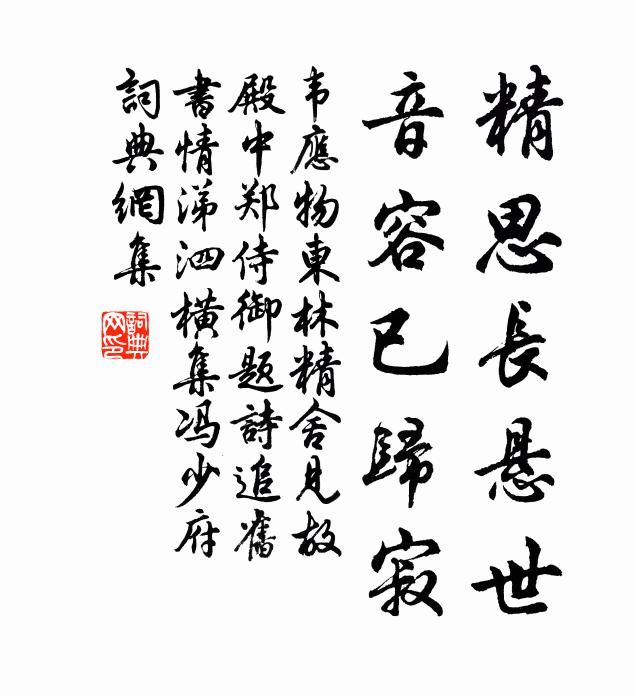 精思長悬世
音容已歸寂
韦應物東林精舍見故
殿中郑侍御题詩追舊
書情涕泗横集冯少府
詞典網集
詞典
网印